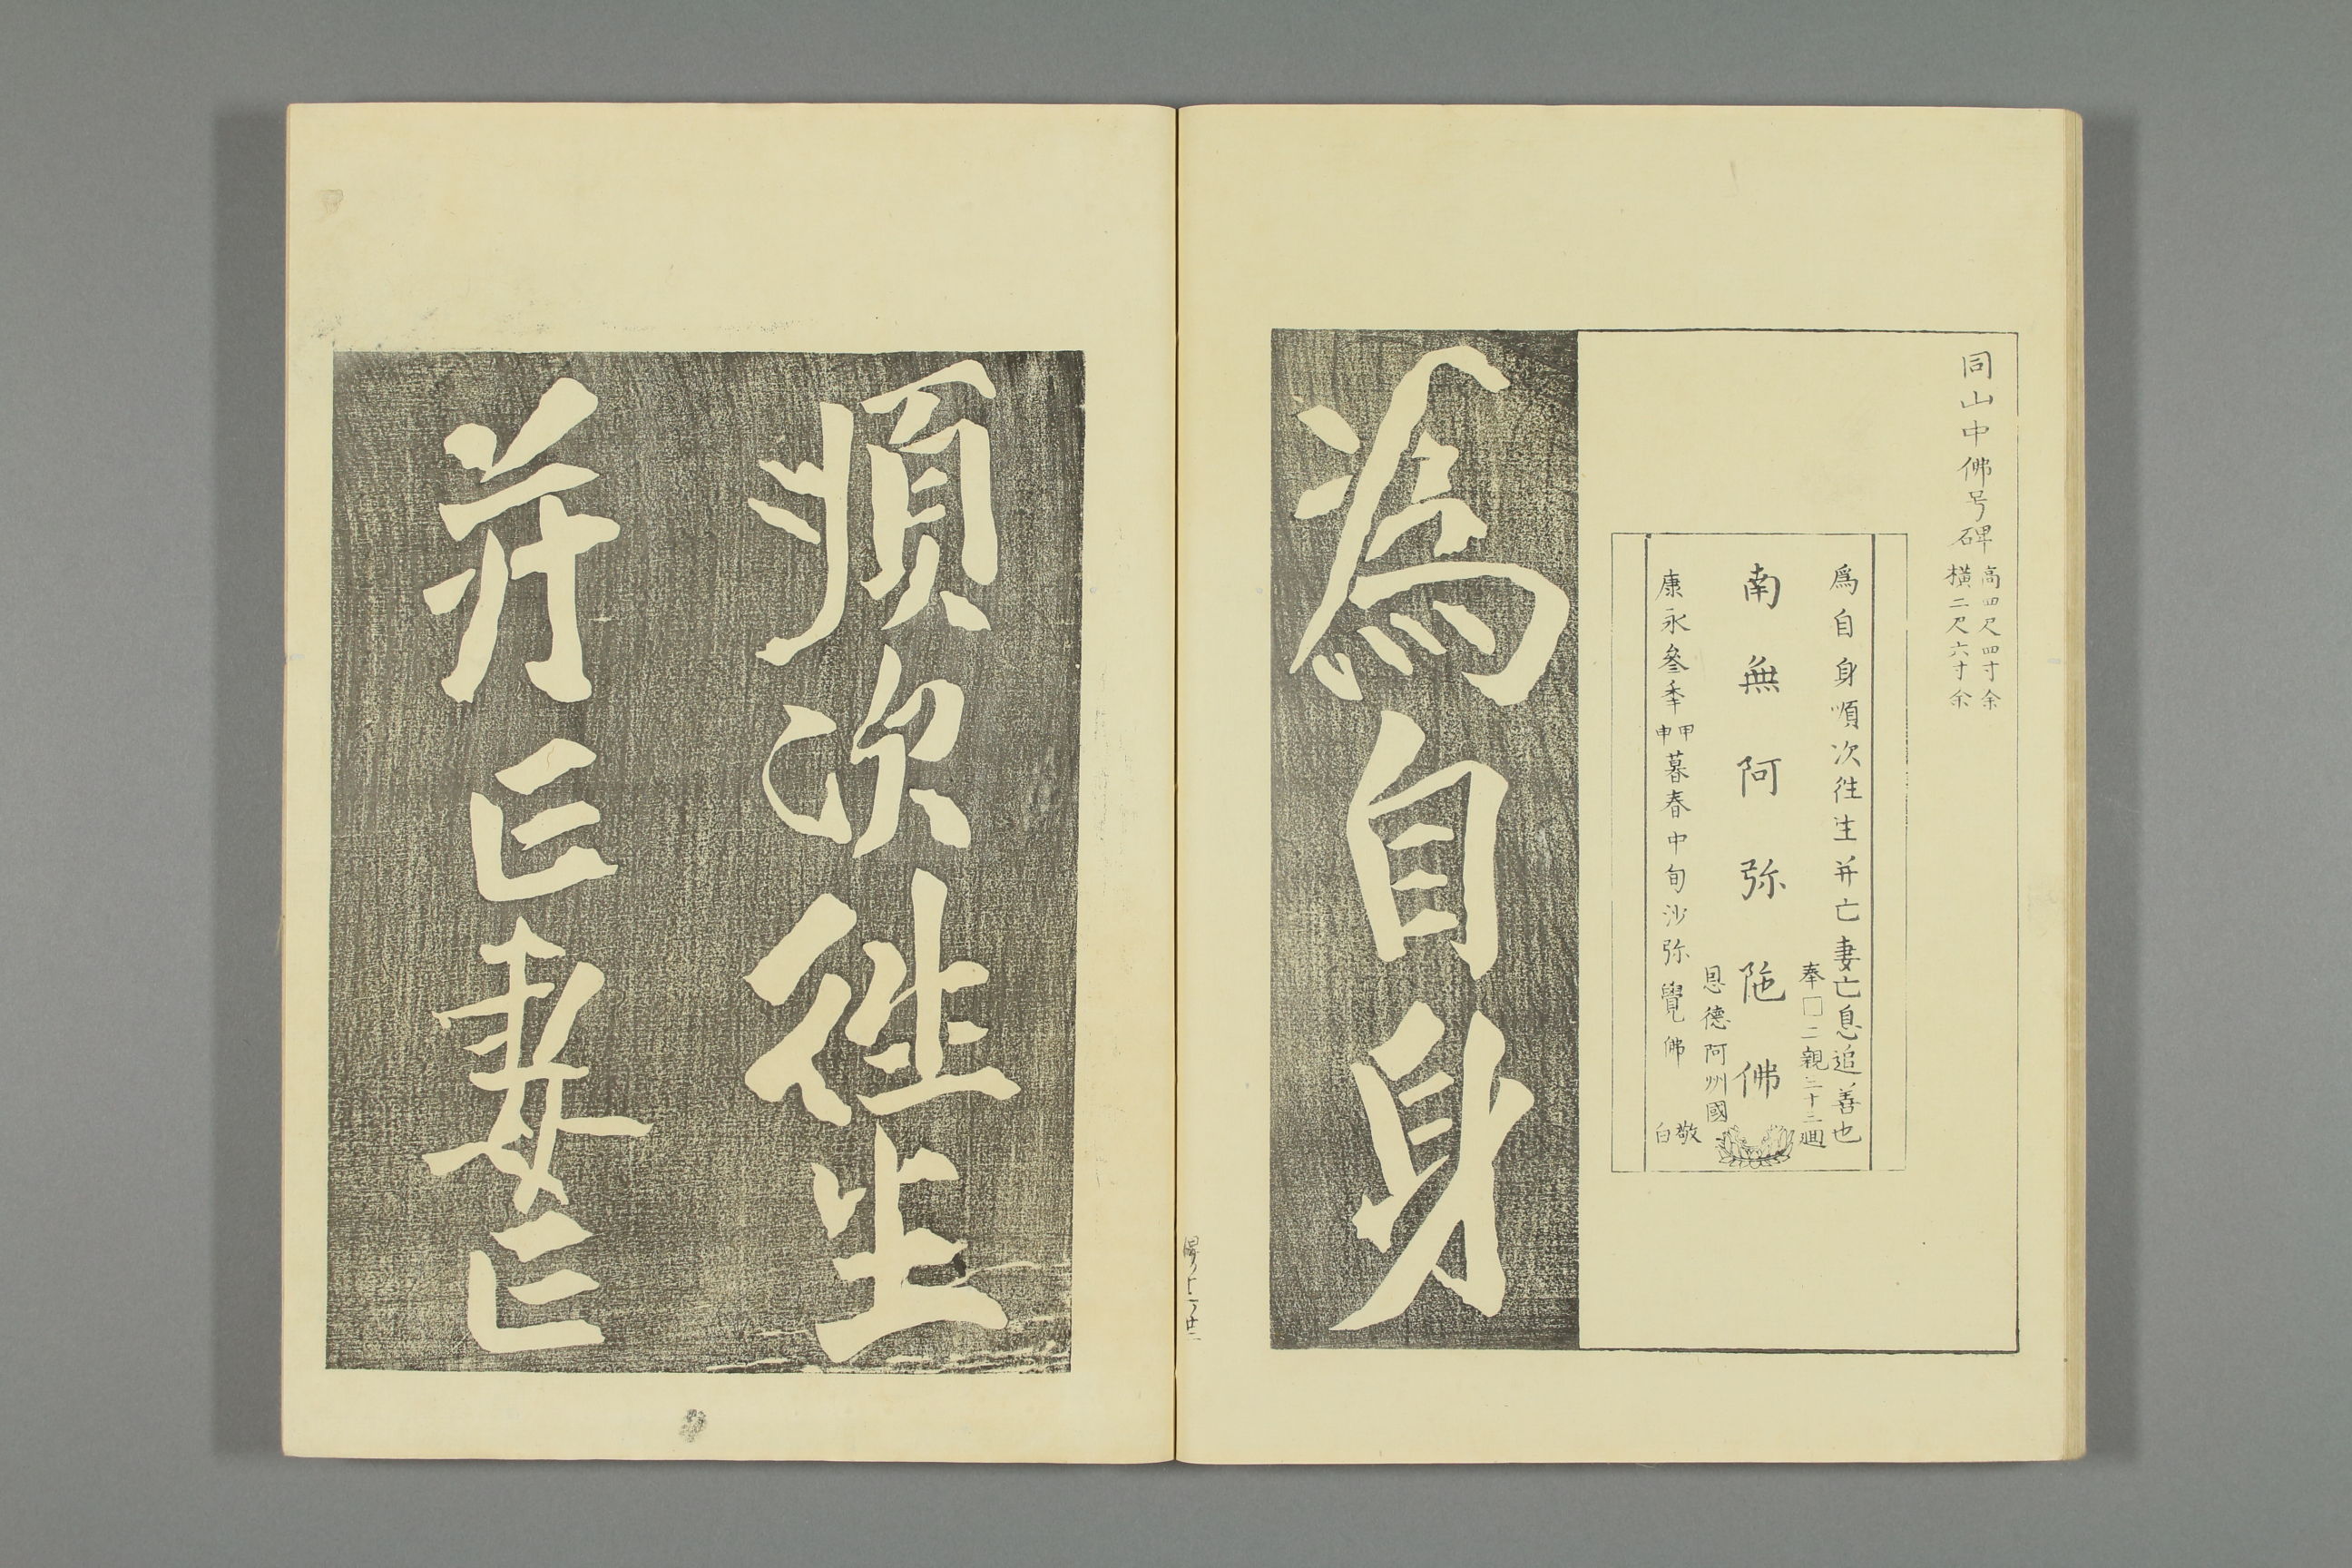 同山中佛号碑
高四尺四寸余
橫二尺六寸余
爲自身順次徃生并亡妻亡息追善也
奉□二親三十三廻
南無阿弥陁佛
恩德阿州國
康永叄季甲申暮春中旬沙弥覺佛敬白
為自身
順次徃生
并亡妻亡